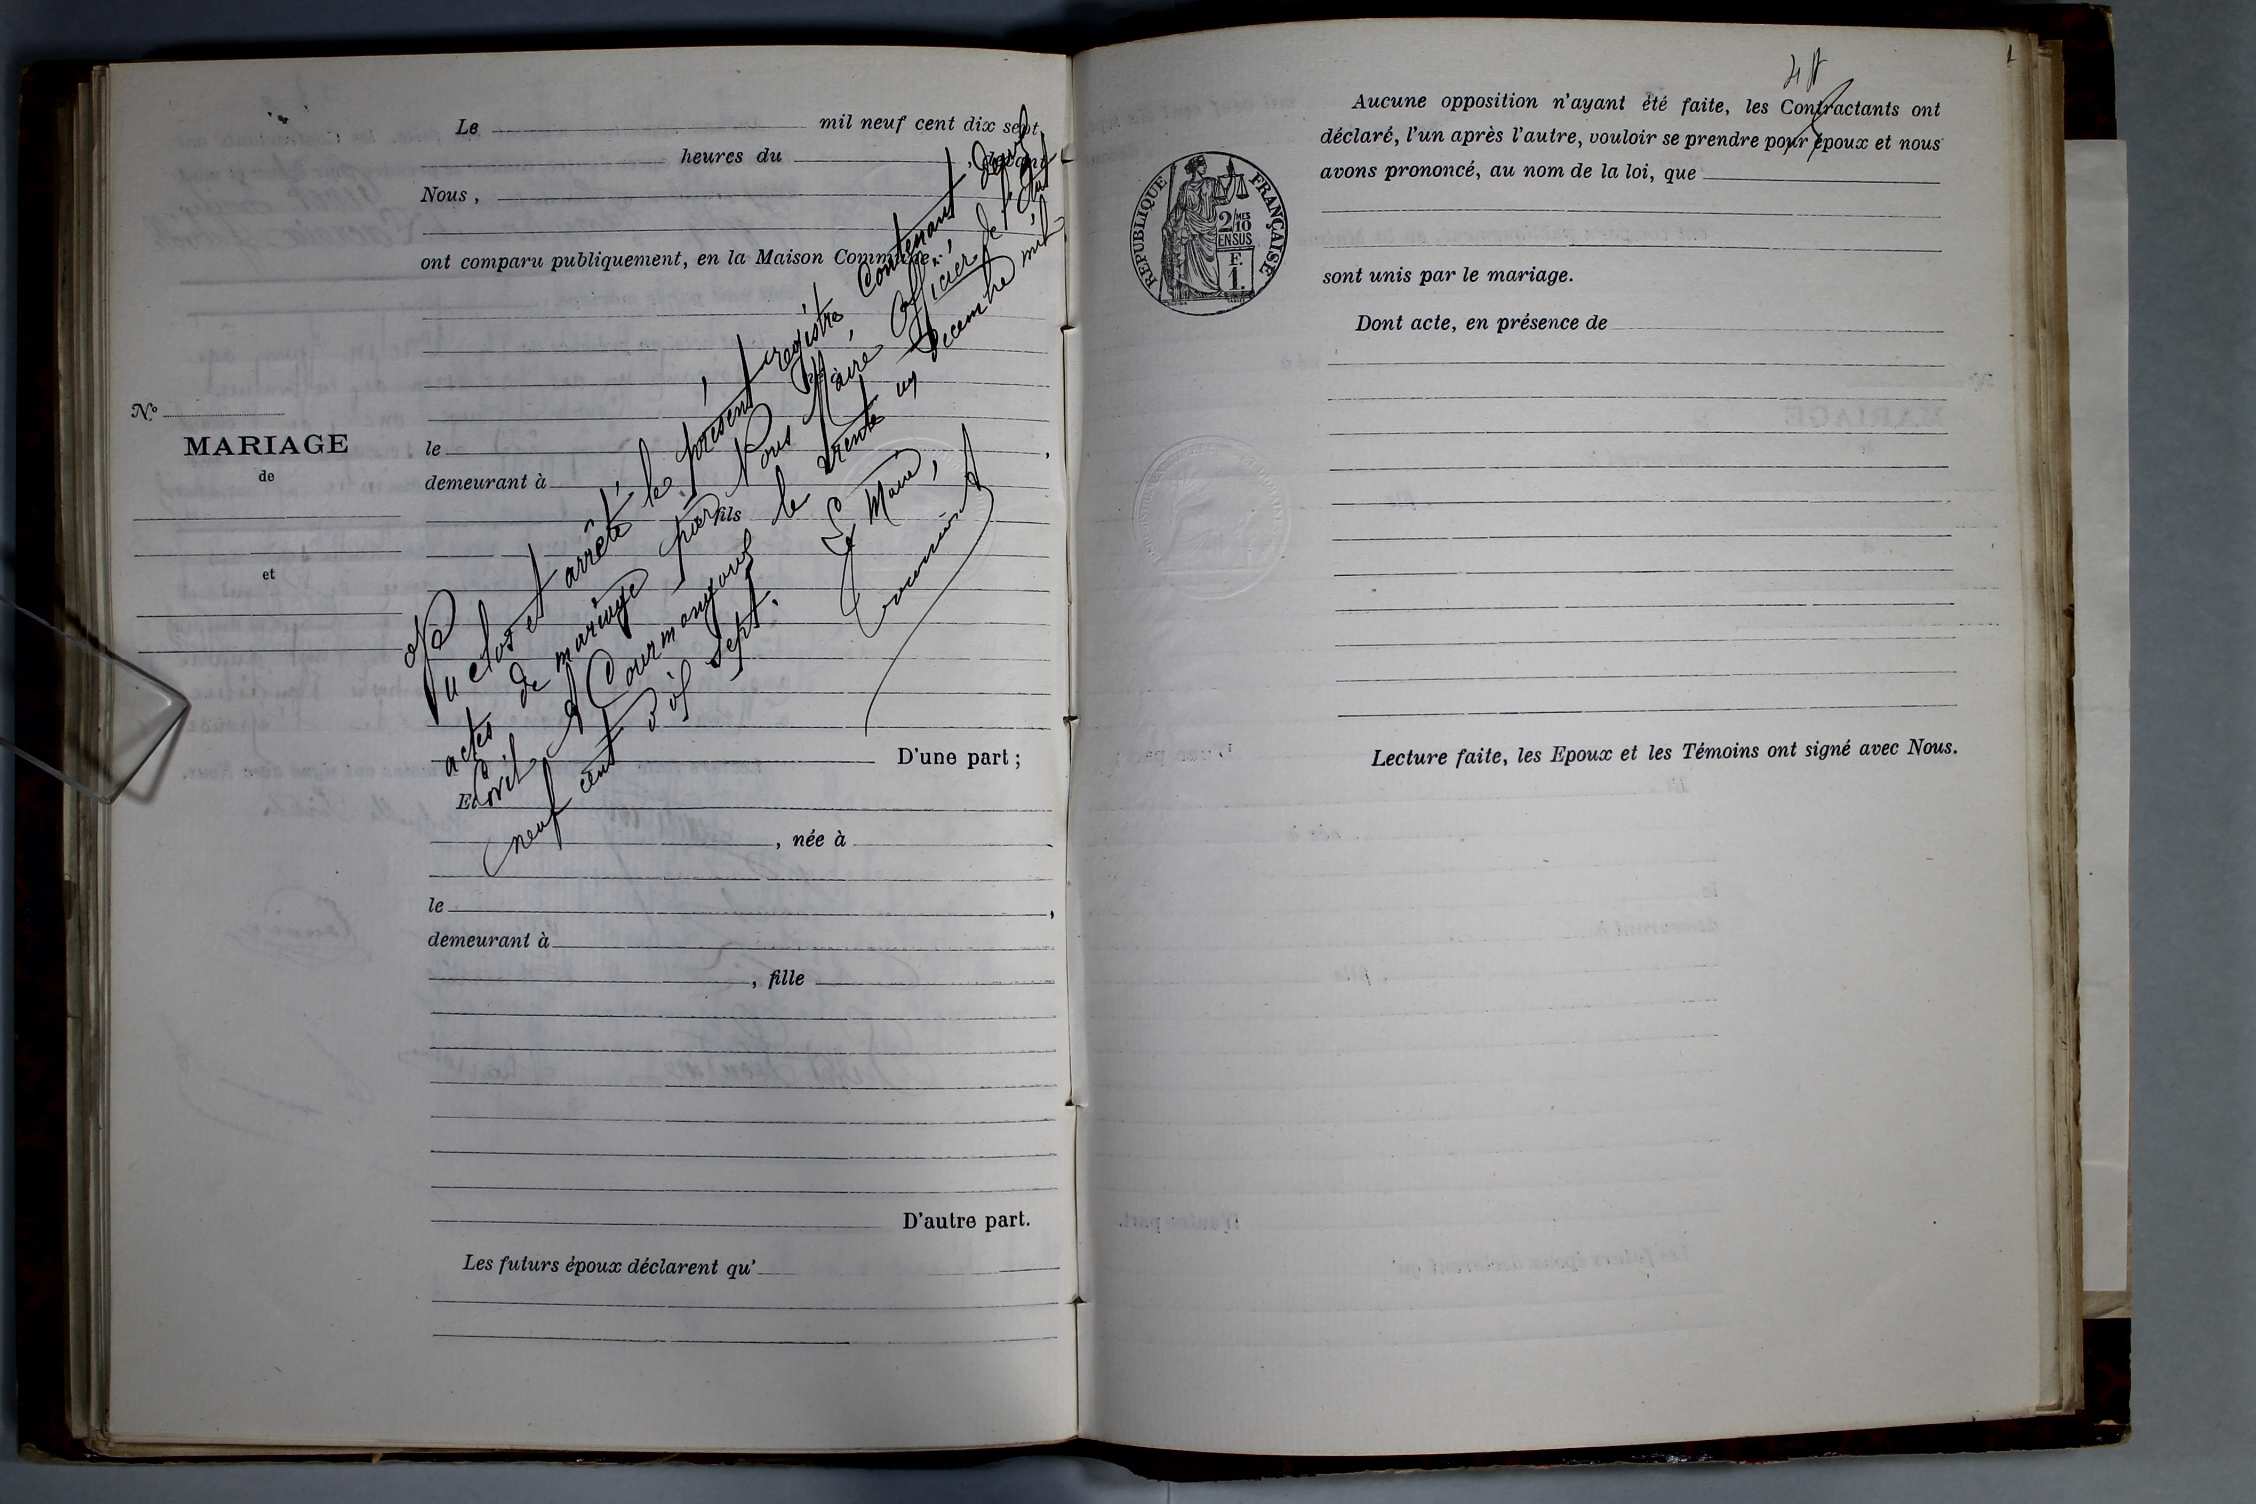 Le mil neuf cent dix sept,
heures du , devant
Nous,
ont comparu publiquement, en la Maison Commune
né à
N°
MARIAGE
de
et
le ,
demeurant à
fils
D'une part ;
Et
, née à
le ,
demeurant à
, fille
D'autre part.
Les futurs époux déclarent qu'
Vu clos et arrêté le présent registre contenant deux
actes de mariage par Nous Maire, Officier de l'état
Civil A Courmangoux le trente un Décembre mil
neuf cent dix sept.
Le Maire,
Aucune opposition n'ayant été faite, les Contractants ont
déclaré, l'un après l'autre, vouloir se prendre pour époux et nous
avons prononcé, au nom de la loi, que
sont unis par le mariage.
Dont acte, en présence de
Lecture faite, les Epoux et les Témoins ont signé avec Nous.
RÉPUBLIQUE FRANÇAISE
2/MES
10
EN SUS
F.
1.